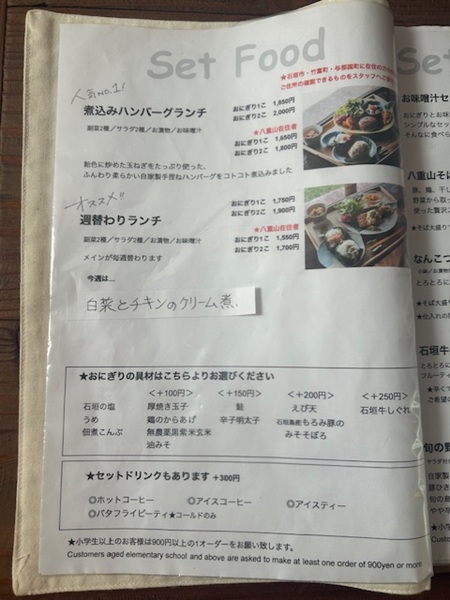 Set Food
★石垣市・竹富町・与那国町に在住の方
ご住所の確認できるものをスタッフへご
人気NO.1!
煮込みハンバーグランチ
副菜2種／サラダ2種／お漬物／お味噌汁
おにぎり1こ 1,850円
おにぎり2こ 2,000円
★八重山在住者
おにぎり1こ 1,650円
おにぎり2こ 1,800円
飴色に炒めた玉ねぎをたっぷり使った、
ふんわり柔らかい自家製手捏ねハンバーグをコトコト煮込みました
オススメ!!
週替わりランチ
副菜2種／サラダ2種／お漬物／お味噌汁
メインが毎週替わります
おにぎり1こ 1,750円
おにぎり2こ 1,900円
★八重山在住者
おにぎり1こ 1,550円
おにぎり2こ 1,700円
今週は…
白菜とチキンのクリーム煮、
★おにぎりの具材はこちらよりお選びください
石垣の塩
うめ
佃煮こんぶ
＜＋100円＞
厚焼き玉子
鶏のからあげ
無農薬黒紫米玄米
油みそ
＜＋150円＞
鮭
辛子明太子
＜＋200円＞
えび天
石垣島産もろみ豚の
みそそぼろ
＜＋250円＞
石垣牛しぐれ
★セットドリンクもあります ＋300円
◎ホットコーヒー ◎アイスコーヒー ◎アイスティー
◎バタフライピーティ★コールドのみ
★小学生以上のお客様は900円以上の1オーダーをお願い致します。
Customers aged elementary school and above are asked to make at least one order of 900yen or more
Set
お味噌汁セ
おにぎりとお味
シンプルなセッ
そんなに食べら
八重山そば
豚、鶏、干し
野菜から取っ
使った贅沢
★そば大盛り
なんこつ
とろとろに
★そば大盛り
★仕入れの
石垣牛
フルーティ
★辛くて
ご希望の
旬の野
自家製
豚ひき
旬の島
やや辛
★小学生
Custom